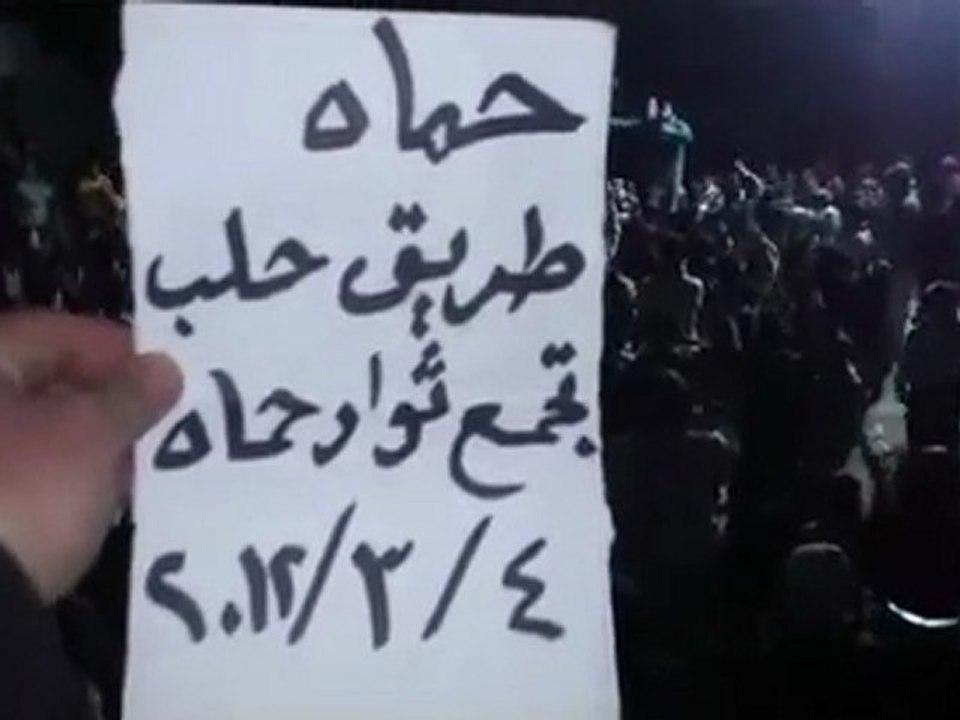 حماه
طريق حلب
تجمع ثوار حماه
٤ / ٣ / ٢٠١٢